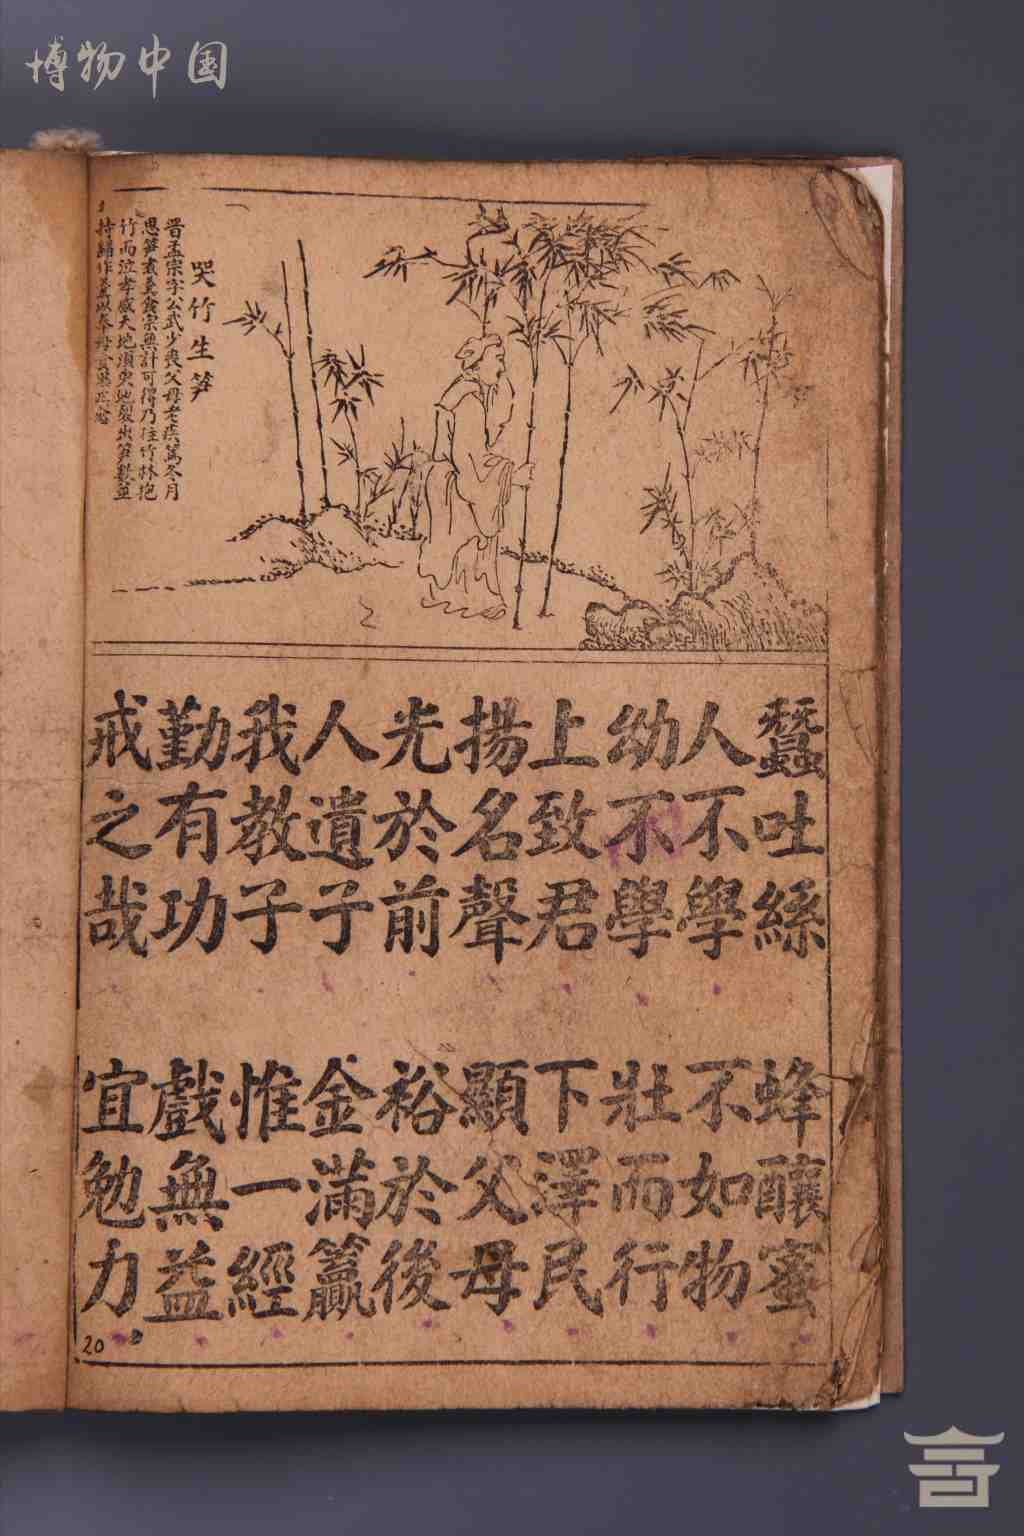 博物中国
哭竹生笋
晋孟宗字公武少丧父母老疾篤冬月
思笋煮羹食宗無計可得乃往竹林抱
竹而泣孝感天地須臾地裂出笋數莖
持歸作羹以奉母食畢疾愈
蠶吐絲 蜂釀蜜
人不學 不如物
幼不學 壯而行
上致君 下澤民
揚名聲 顯父母
光於前 裕於後
人遺子 金滿籯
我教子 惟一經
勤有功 戲無益
戒之哉 宜勉力
20